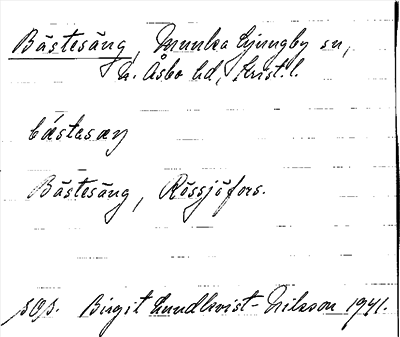 Bästesäng, Munka Ljungby sn,
N. Åsbo hd, Krist. l.
bástasæŋ
Bästesäng, Rössjöfors.
sOs. Birgit Lundkvist-Nilsson 1941.